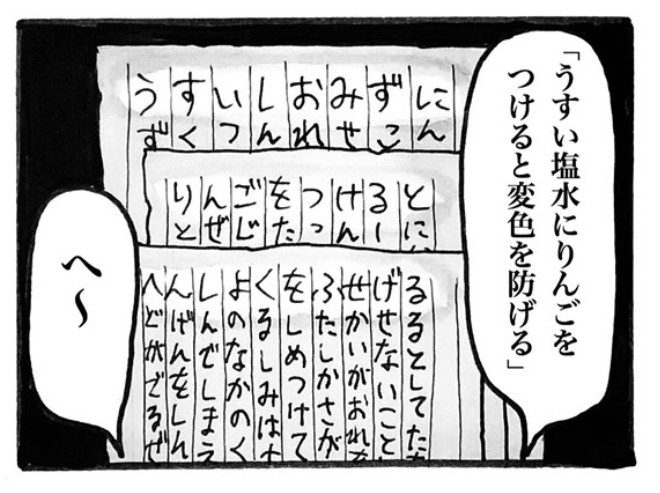 「うすい塩水にりんごを
つけると変色を防げる」
にん
ずこ
みせ
おれ
しん
いつ
すく
うず
とに
るー
けん
つっ
をた
ごじ
んぜ
りと
るるとしてた
げせないこと
せかいがおれ
ふたしかさが
をしめつけて
くるしみは
よのなかのく
しんでしまえ
んげんをしん
へどがでるぜ
へ〜